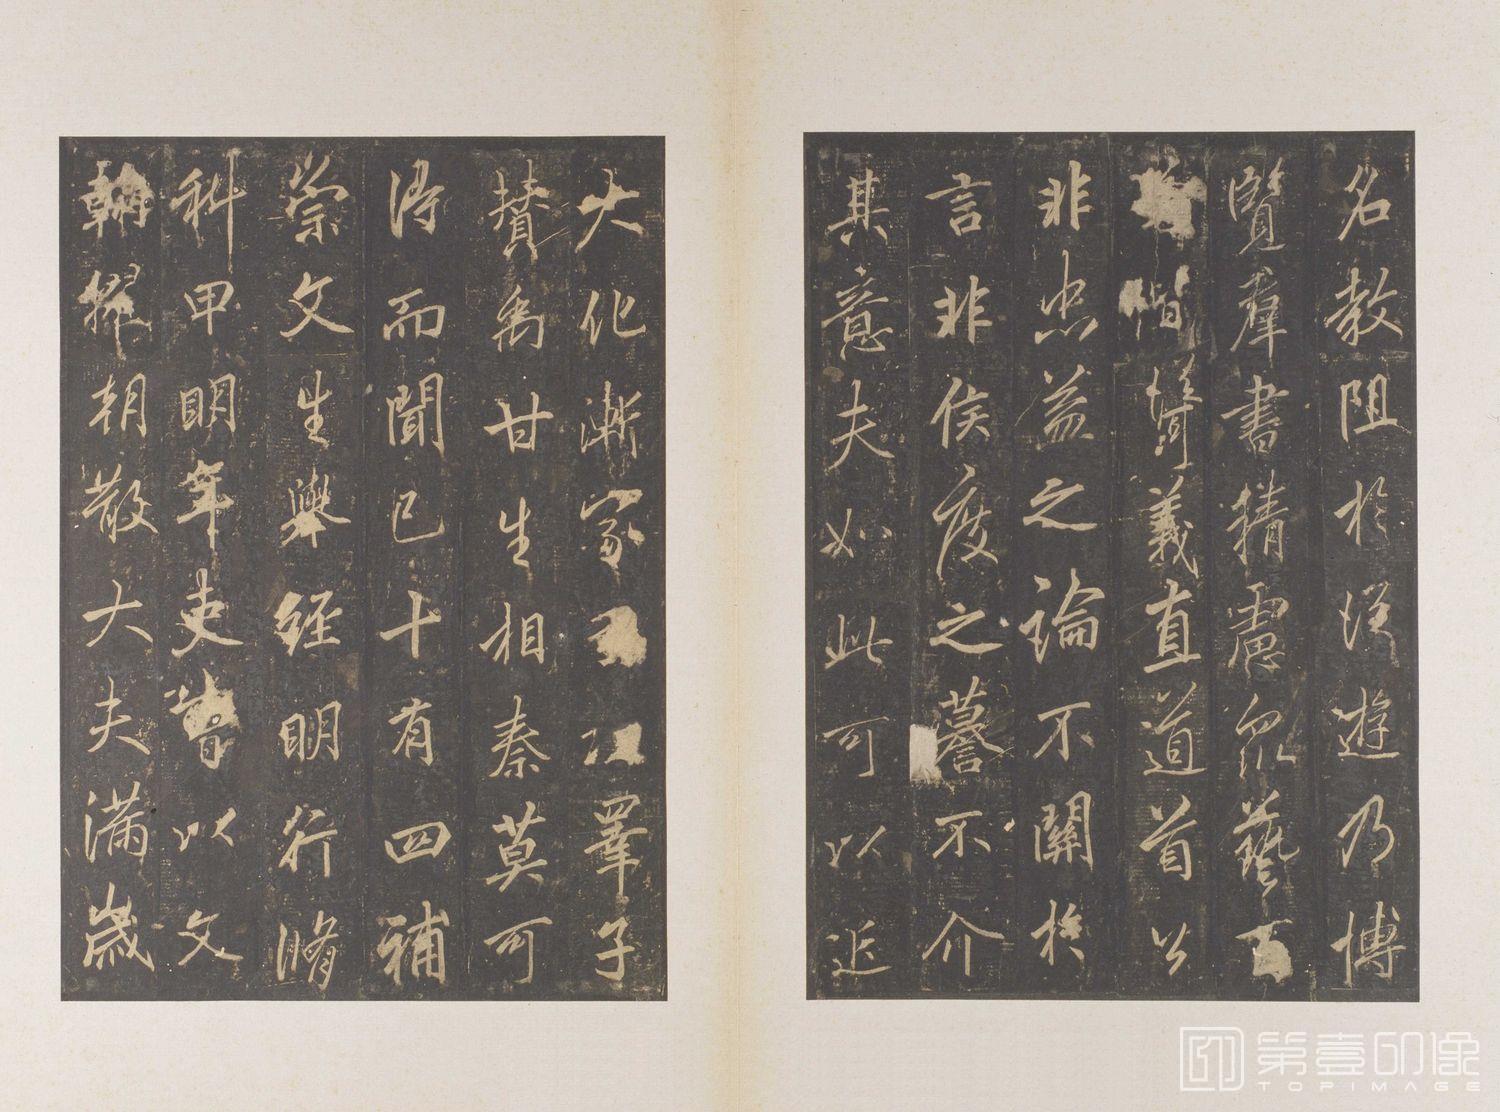 名教阻於從遊乃博
覽羣書精慮眾藝百
義直道首公
非忠益之論不關於
言非侯度之謩不介
其意夫如此可以近
大化漸家睪子
贊禹甘生相秦莫可
得而聞已十有四補
崇文生舉經明行脩
科甲明年吏曹以文
翰擢朝散大夫滿歲
第壹印像
TOPIMAGE